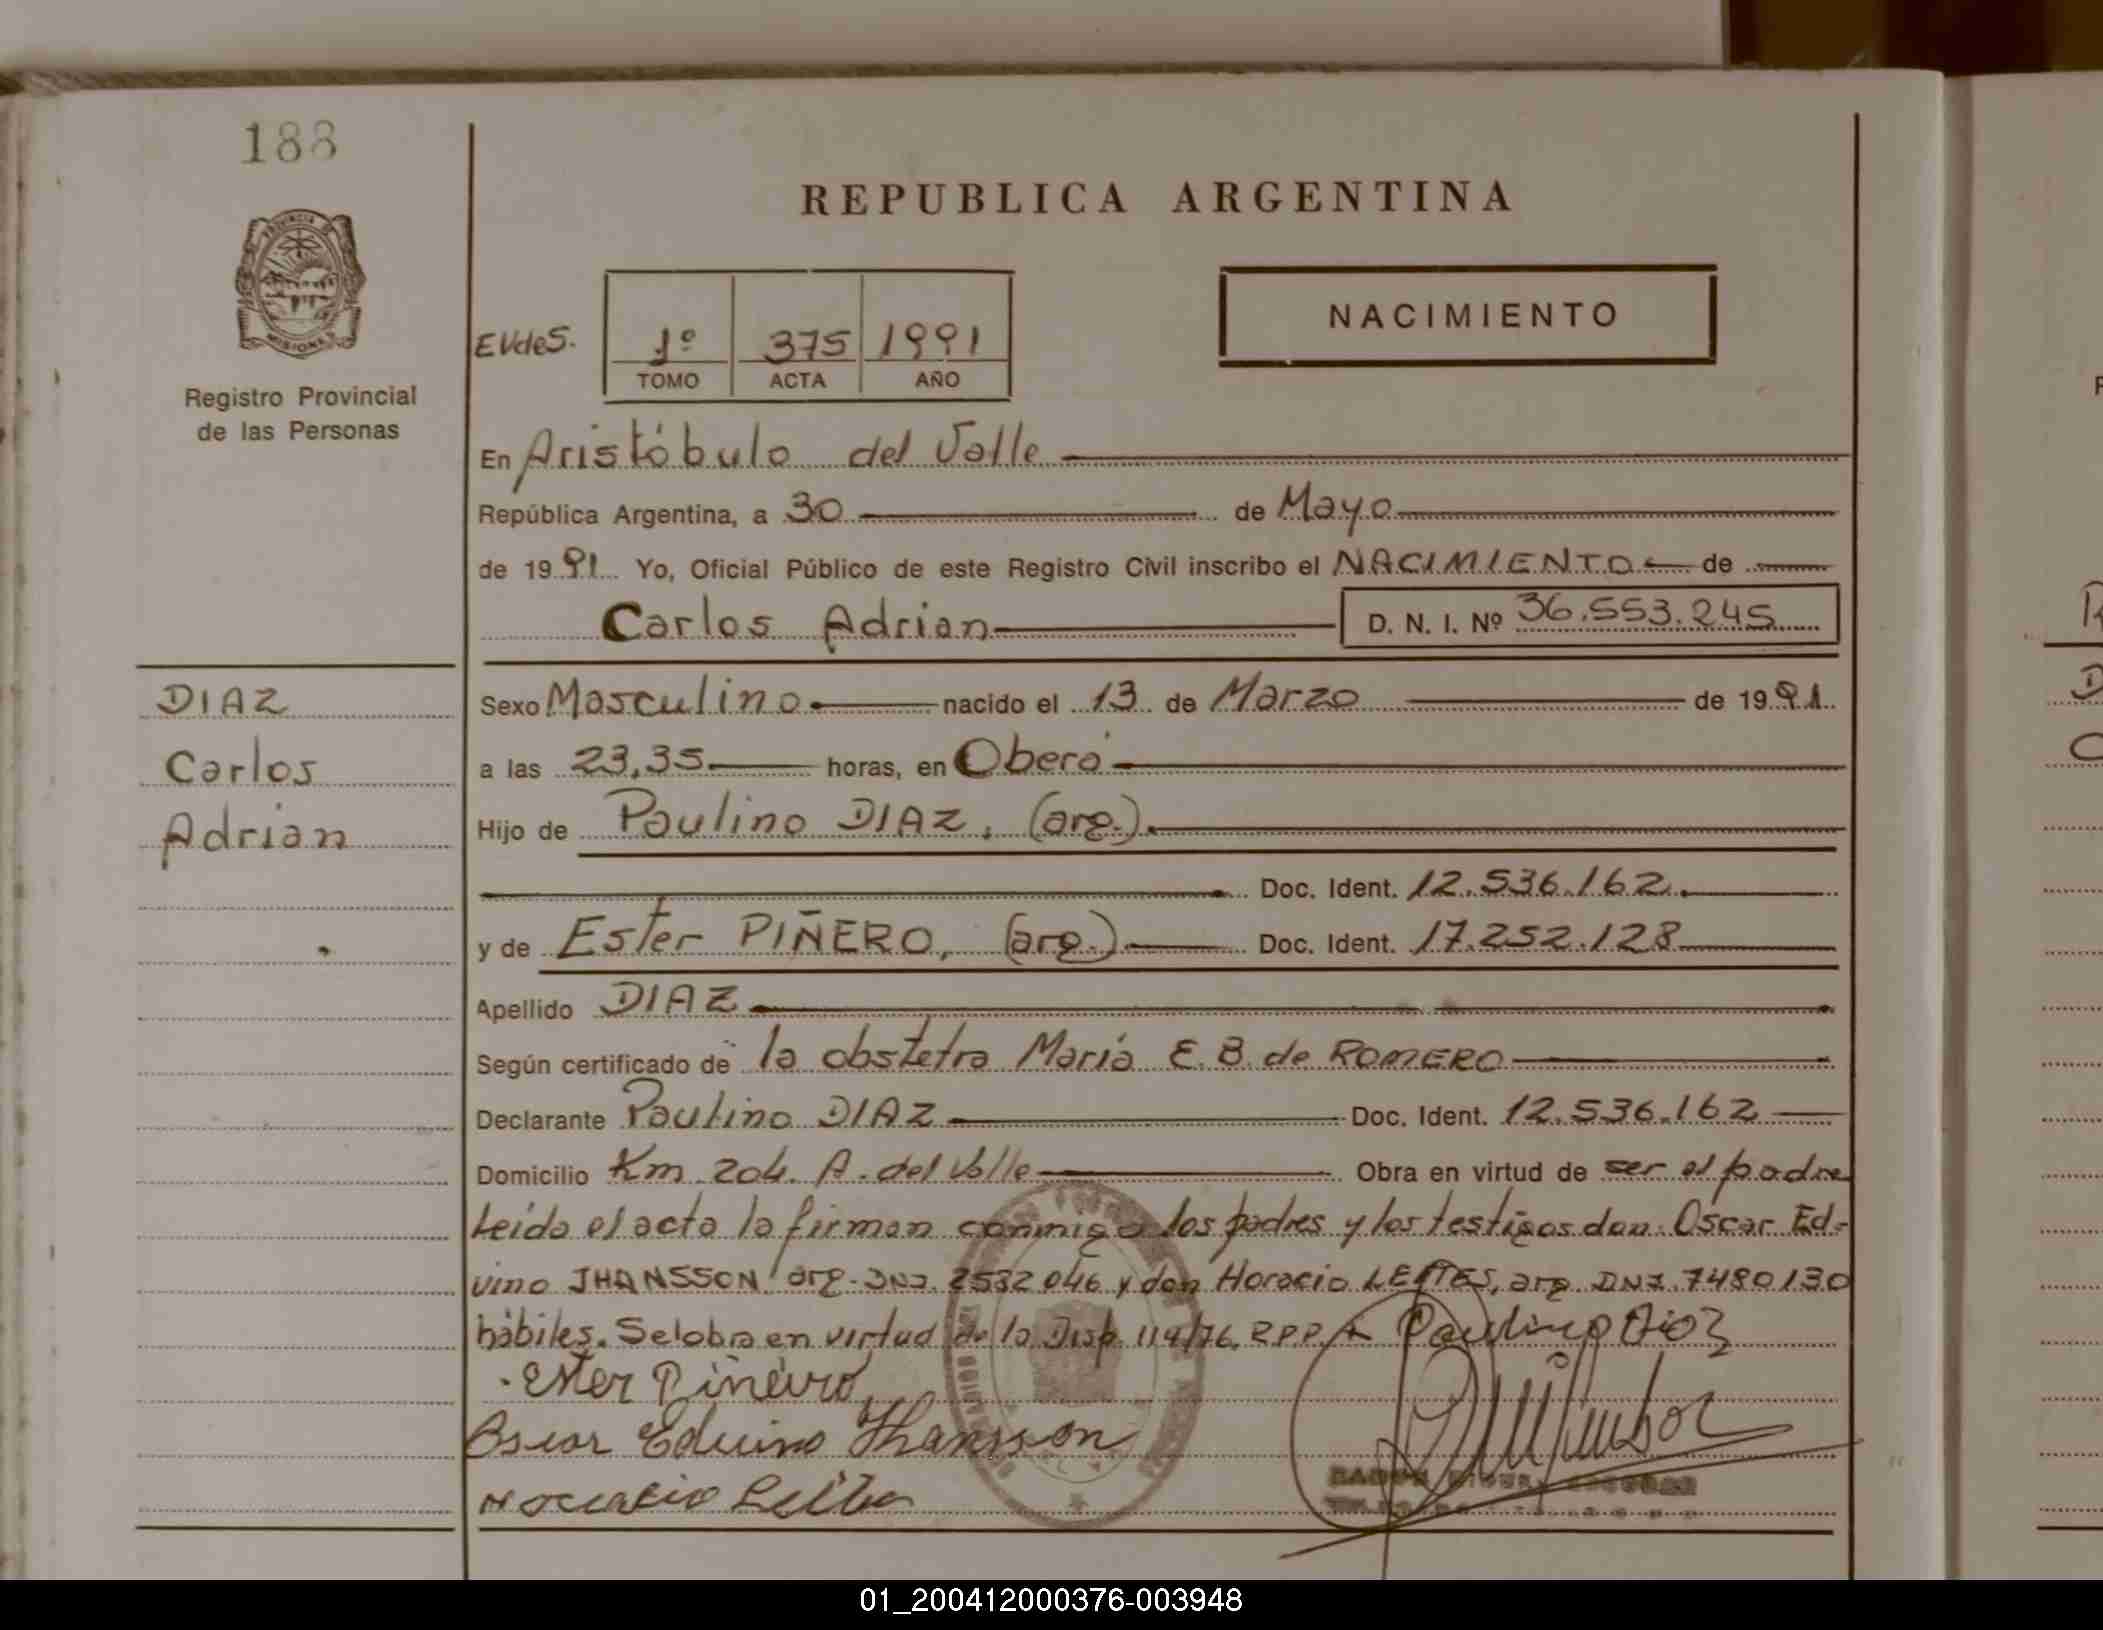 188
REPUBLICA ARGENTINA
PROVINCIA DE
MISIONES
Registro Provincial
de las Personas
NACIMIENTO
EVdeS.
1º 375 1991
TOMO ACTA AÑO
En Aristóbulo del Valle
República Argentina, a 30 de Mayo
de 1991 Yo, Oficial Público de este Registro Civil inscribo el NACIMIENTO de
Carlos Adrian D. N. I. Nº 36.553.245
DIAZ
Carlos
Adrian
Sexo Masculino nacido el 13 de Marzo de 1991
a las 23,35 horas, en Oberá
Hijo de Paulino DIAZ, (arg.).
Doc. Ident. 12.536.162.
y de Ester PIÑERO, (arg.) Doc. Ident. 17.252.128
Apellido DIAZ
Según certificado de la obstetra María E. B. de ROMERO
Declarante Paulino DIAZ Doc. Ident. 12.536.162
Domicilio Km 204. A. del Valle Obra en virtud de ser el padre
Leída el acta la firman conmigo los padres y los testigos don: Oscar Ed=
vino JHANSSON arg. DNI. 2532046 y don Horacio LEITES, arg. DNI. 7480130
hábiles. Se labra en virtud de la Disp. 114/76. R.P.P. Paulino Diaz
Ester Piñeiro
Oscar Eduino Jhansson
Horacio
01_200412000376-003948